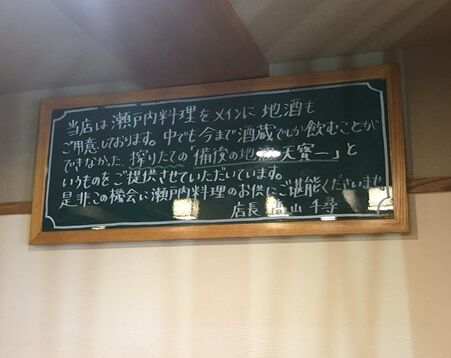 当店は瀬戸内料理をメインに地酒も
ご用意しております。中でも今まで酒蔵でしか飲むことが
できなかった、搾りたての「備後の地 天寶一」と
いうものをご提供させていただいています。
是非この機会に瀬戸内料理のお供にご堪能くださいませ
店長 山 千尋